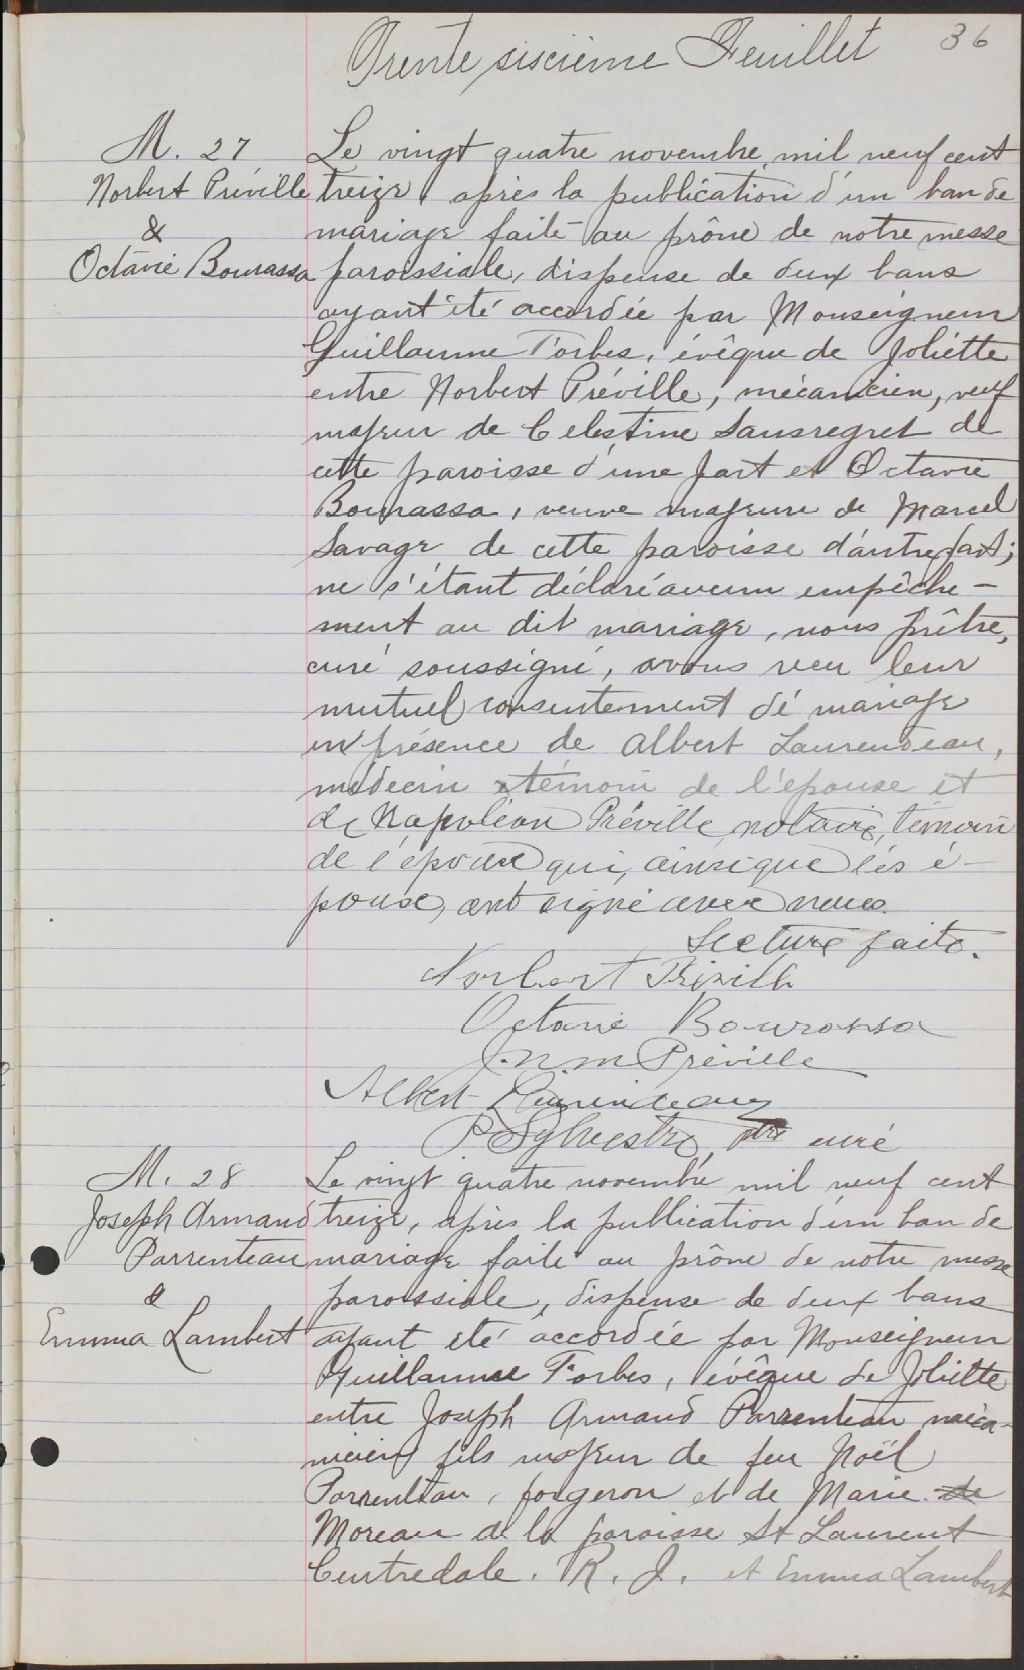 Trente sixième Feuillet 36
M. 27
Norbert Préville
&
Octavie Bourassa
Le vingt quatre novembre mil neuf cent
treize, après la publication d'un ban de
mariage faite au prône de notre messe
paroissiale, dispense de deux bans
ayant été accordée par Monseigneur
Guillaume Forbes, évêque de Joliette
entre Norbert Préville, mécanicien, veuf
majeur de Celestine Sansregret de
cette paroisse d'une part et Octavie
Bourassa, veuve majeure de Marcel
Savage de cette paroisse d'autre part;
ne s'étant déclaré aucun empêche-
ment au dit mariage, nous prêtre,
curé soussigné, avons reçu leur
mutuel consentement de mariage
en présence de Albert Laurendeau,
médecin témoin de l'épouse et
de Napoléon Préville notaire, témoin
de l'époux qui, ainsi que les é-
poux, ont signé avec nous.
Lecture faite.
Norbert Préville
Octavie Bourassa
J. N. M Préville
Albert Laurendeau
P Sylvestre, ptre curé
M. 28
Joseph Armand
Parrenteau
&
Emma Lambert
Le vingt quatre novembre mil neuf cent
treize, après la publication d'un ban de
mariage faite au prône de notre messe
paroissiale, dispense de deux bans
ayant été accordée par Monseigneur
Guillaume Forbes, évêque de Joliette
entre Joseph Armand Parrenteau méca-
nicien, fils majeur de feu Noël
Parrenteau, forgeron et de Marie de
Moreau de la paroisse St Laurent
Centredale. R. J. et Emma Lambert